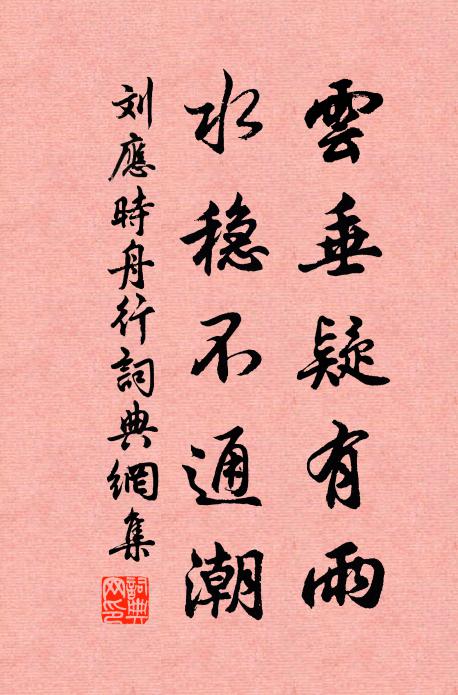 雲垂疑有雨
水穏不通潮
刘應時舟行詞典網集
詞典網印